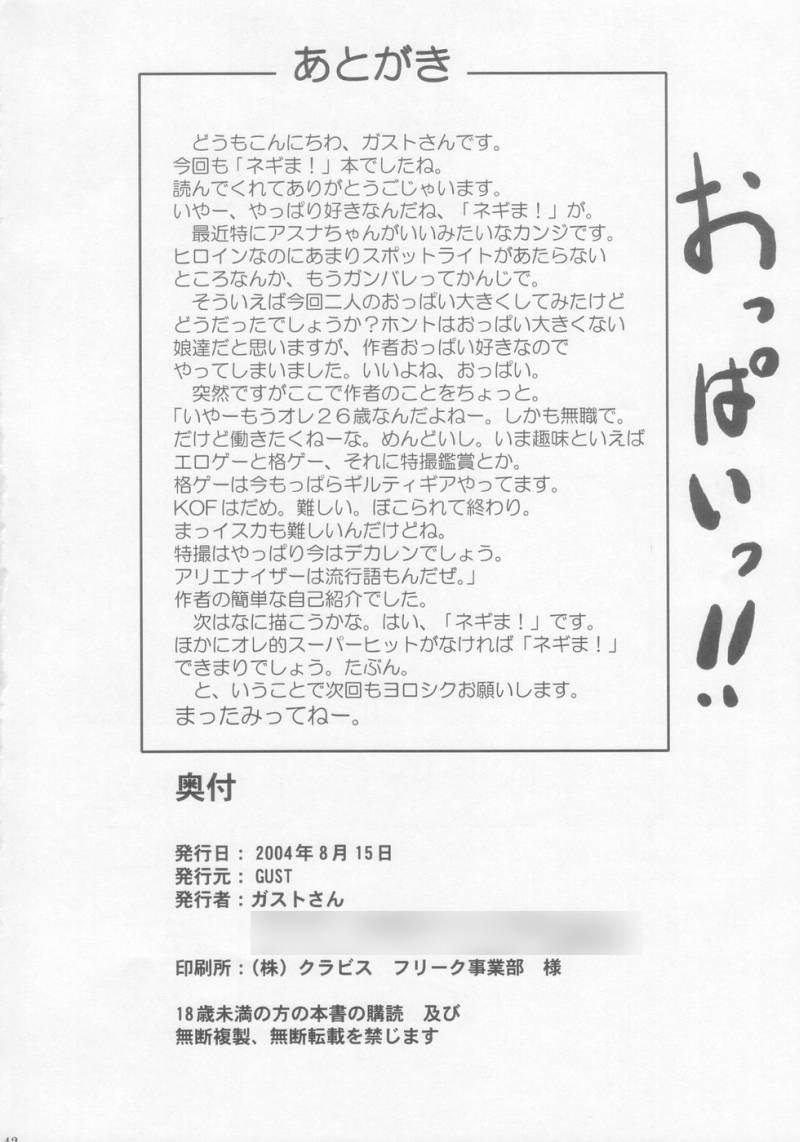 あとがき
　どうもこんにちわ、ガストさんです。
今回も「ネギま！」本でしたね。
読んでくれてありがとうごじゃいます。
いやー、やっぱり好きなんだね、「ネギま！」が。
　最近特にアスナちゃんがいいみたいなカンジです。
ヒロインなのにあまりスポットライトがあたらない
ところなんか、もうガンバレってかんじで。
　そういえば今回二人のおっぱい大きくしてみたけど
どうだったでしょうか？ホントはおっぱい大きくない
娘達だと思いますが、作者おっぱい好きなので
やってしまいました。いいよね、おっぱい。
　突然ですがここで作者のことをちょっと。
「いやーもうオレ２６歳なんだよねー。しかも無職で。
だけど働きたくねーな。めんどいし。いま趣味といえば
エロゲーと格ゲー、それに特撮鑑賞とか。
格ゲーは今もっぱらギルティギアやってます。
KOFはだめ。難しい。ぼこられて終わり。
まっイスカも難しいんだけどね。
特撮はやっぱり今はデカレンでしょう。
アリエナイザーは流行語もんだぜ。」
作者の簡単な自己紹介でした。
　次はなに描こうかな。はい、「ネギま！」です。
ほかにオレ的スーパーヒットがなければ「ネギま！」
できまりでしょう。たぶん。
　と、いうことで次回もヨロシクお願いします。
まったみってねー。
おっぱいっ!!
奥付
発行日：2004年8月15日
発行元：GUST
発行者：ガストさん
印刷所：（株）クラビス　フリーク事業部　様
18歳未満の方の本書の購読　及び
無断複製、無断転載を禁じます